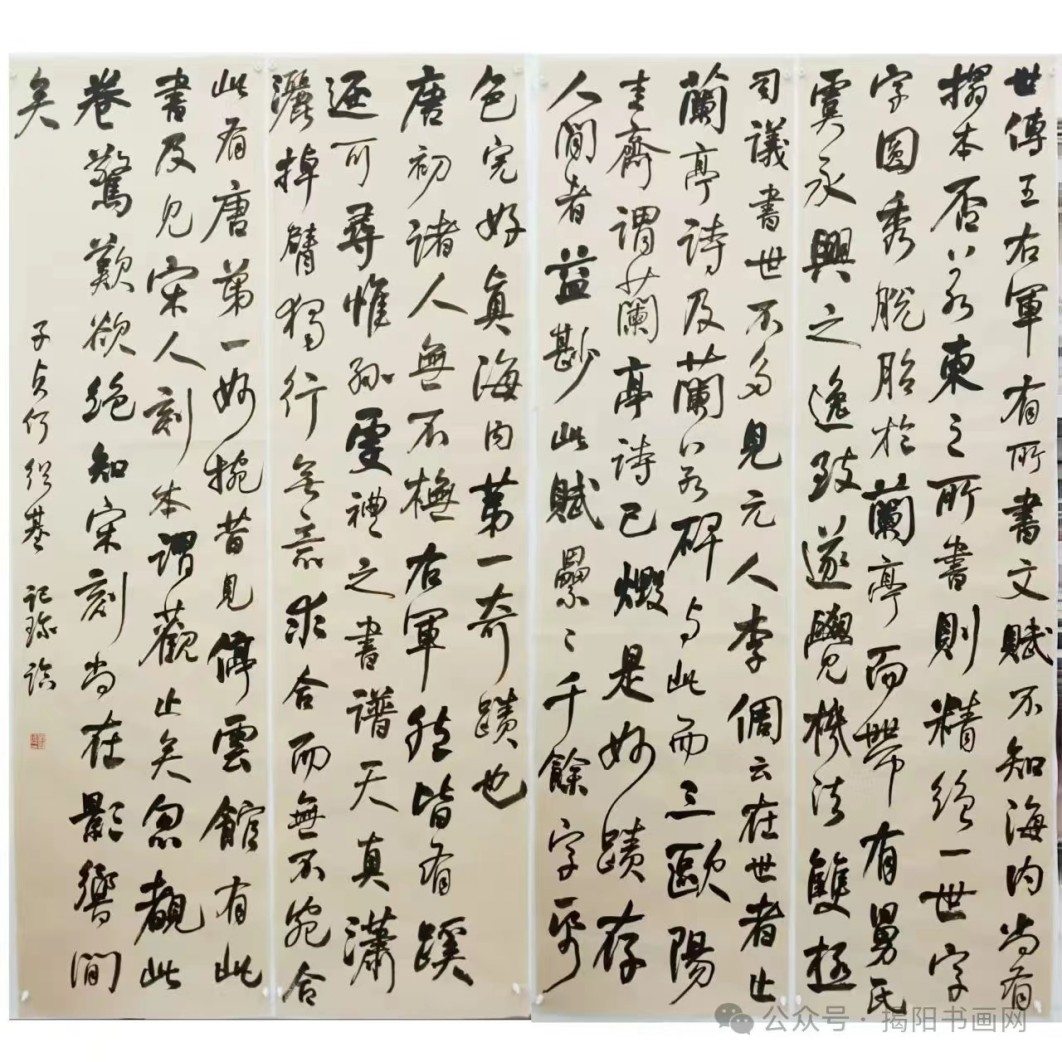 世傳王右軍有所書文賦不知海内尚有
搨本否若東之所書則精絕一世字
字圓秀脫胎於蘭亭而帶有舅氏
虞永興之逸致遂覺機法雙極
司議書世不多見元人李倜云在世者止
蘭亭詩及蘭若碑与此而三歐陽
圭齋謂蘭亭詩已燬是妙蹟存
人間者益尠此賦纍〻千餘字紙
色完好真海内第一奇蹟也
唐初諸人無不橅右軍然皆有蹊
逕可尋惟孫虔禮之書譜天真瀟
灑掉臂獨行無意求合而無不宛合
此有唐第一妙捥昔見停雲館有此
書及見宋人刻本謂觀止矣忽覩此
卷驚歎欲絕知宋刻尚在影響間
矣
子貞何紹基
公众号·揭阳书画网